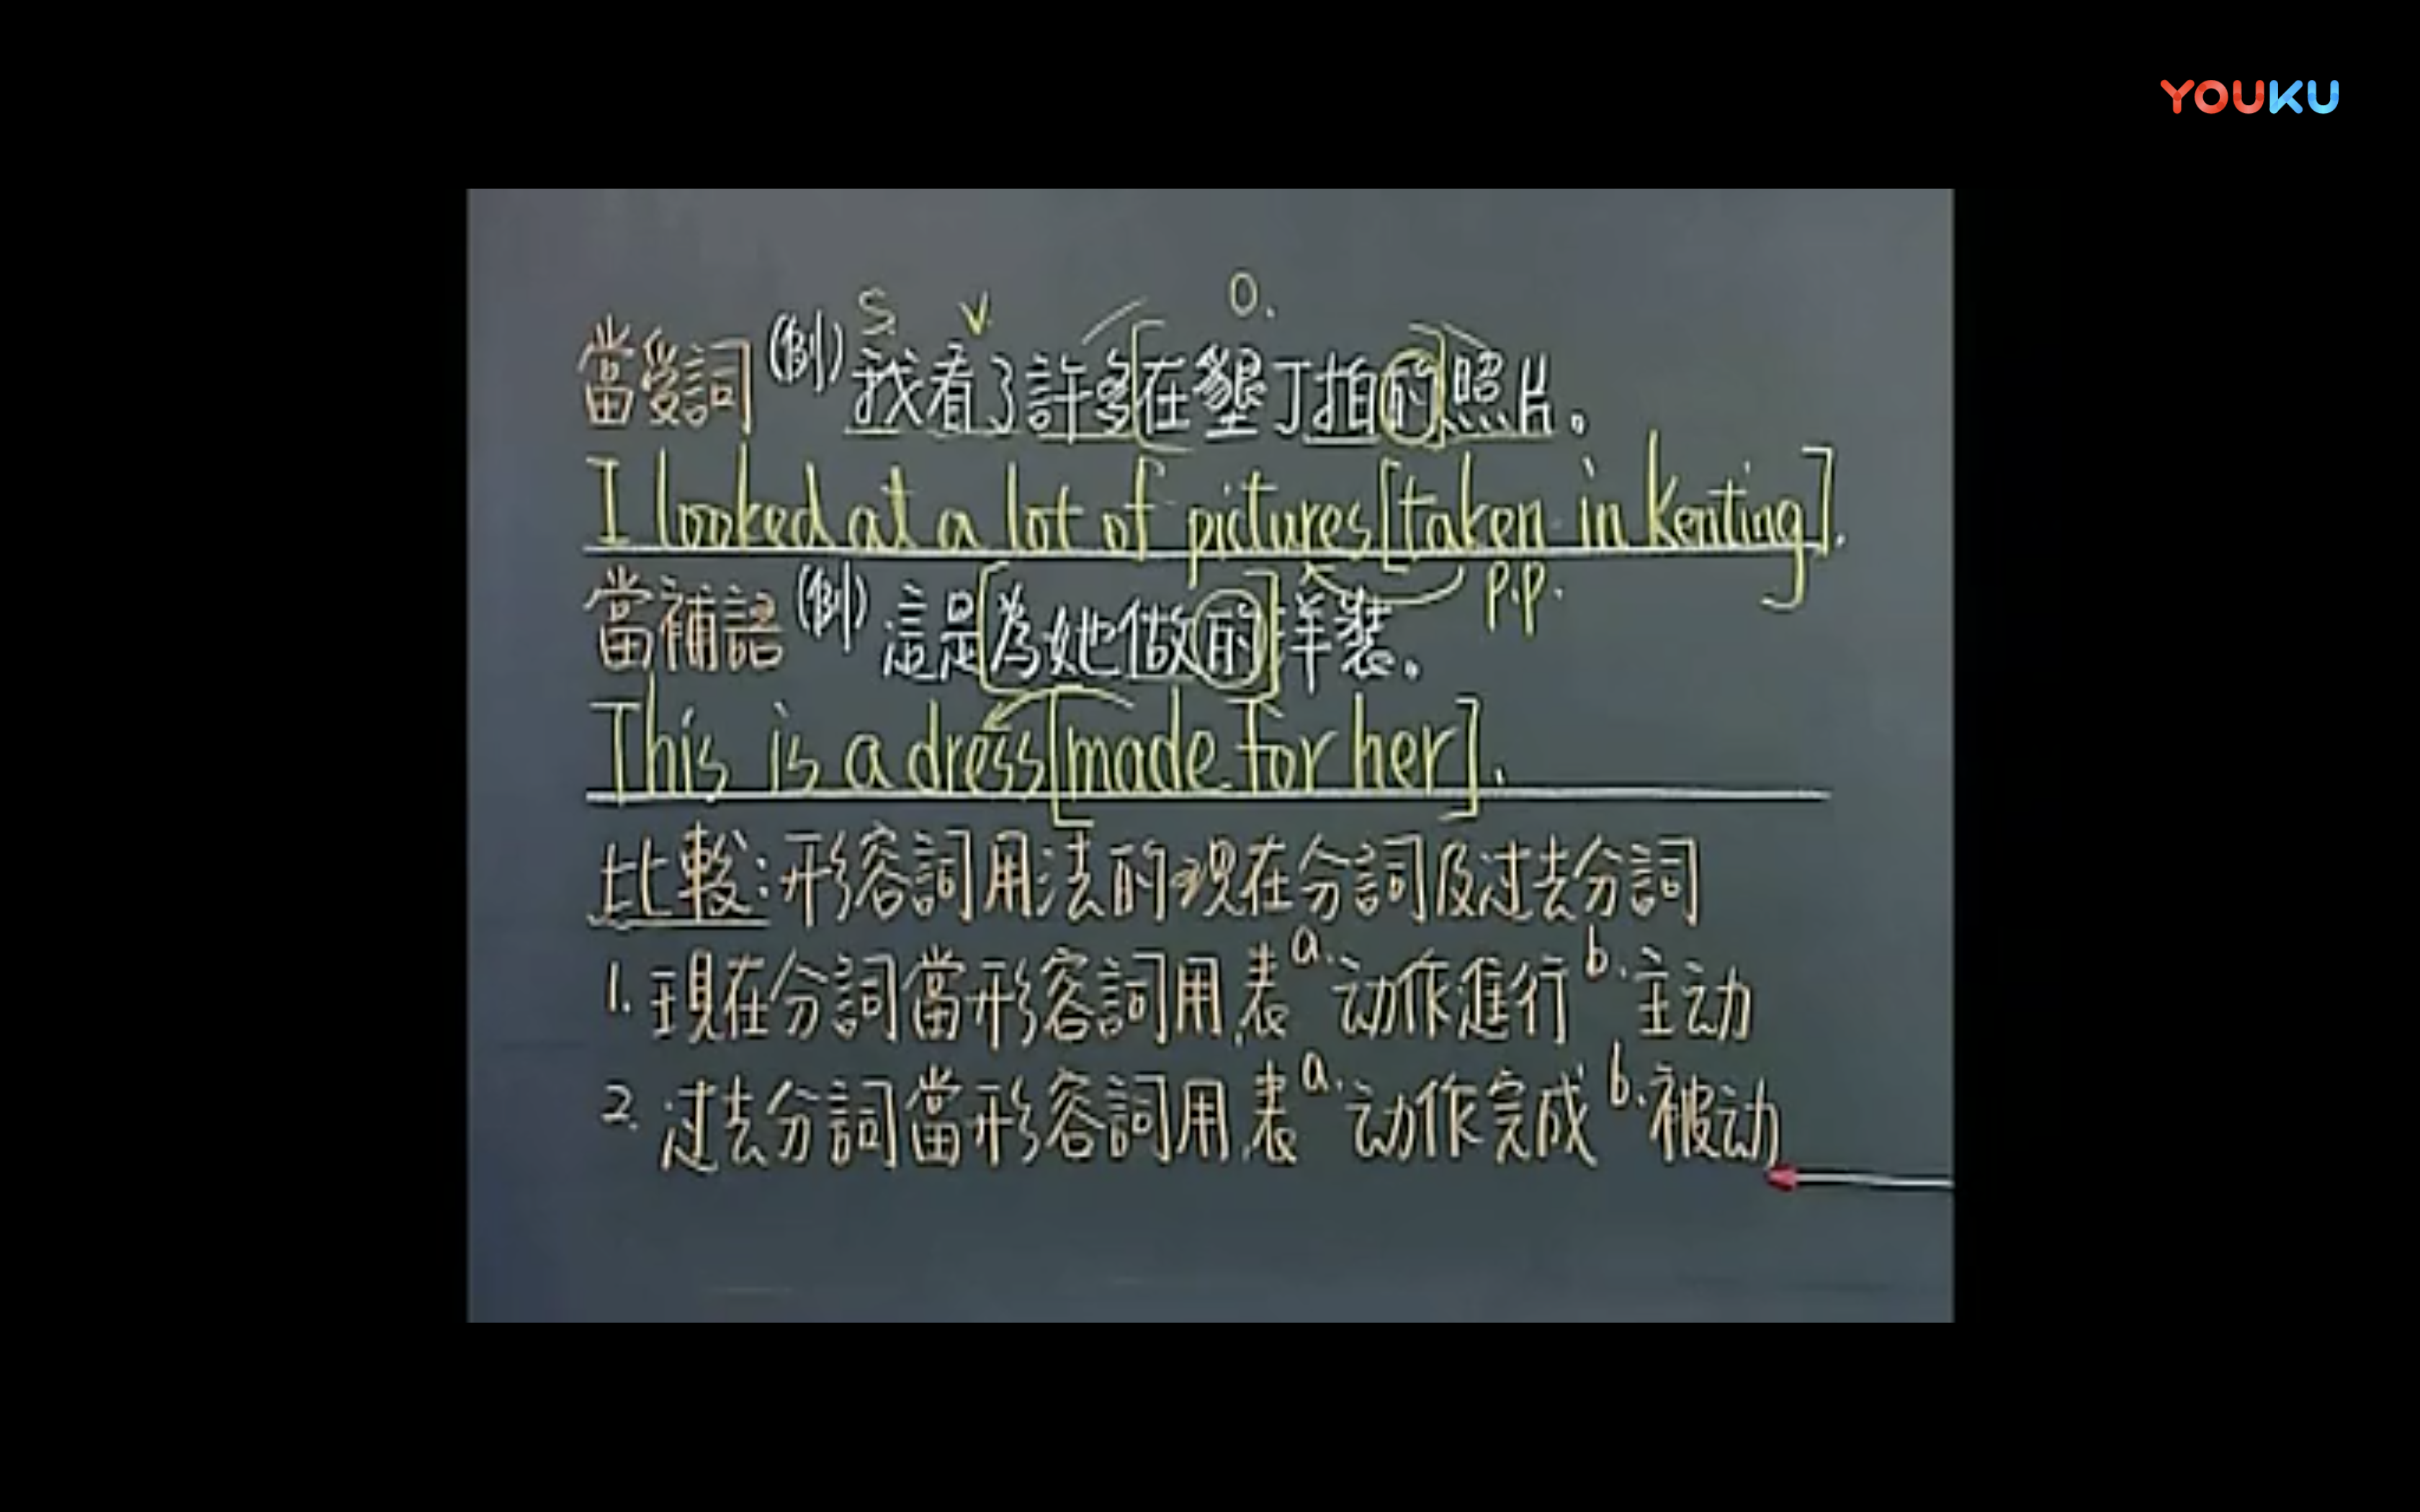 YOUKU
S. V. O.
當受詞 (例) 我看了許多[在墾丁拍的]照片。
I looked at a lot of pictures [taken in Kenting].
p.p.
當補語 (例) 這是[為她做的]洋裝。
This is a dress [made for her].
比較:形容詞用法的現在分詞及过去分詞
1. 現在分詞當形容詞用,表 a. 动作進行 b. 主动
2. 过去分詞當形容詞用,表 a. 动作完成 b. 被动